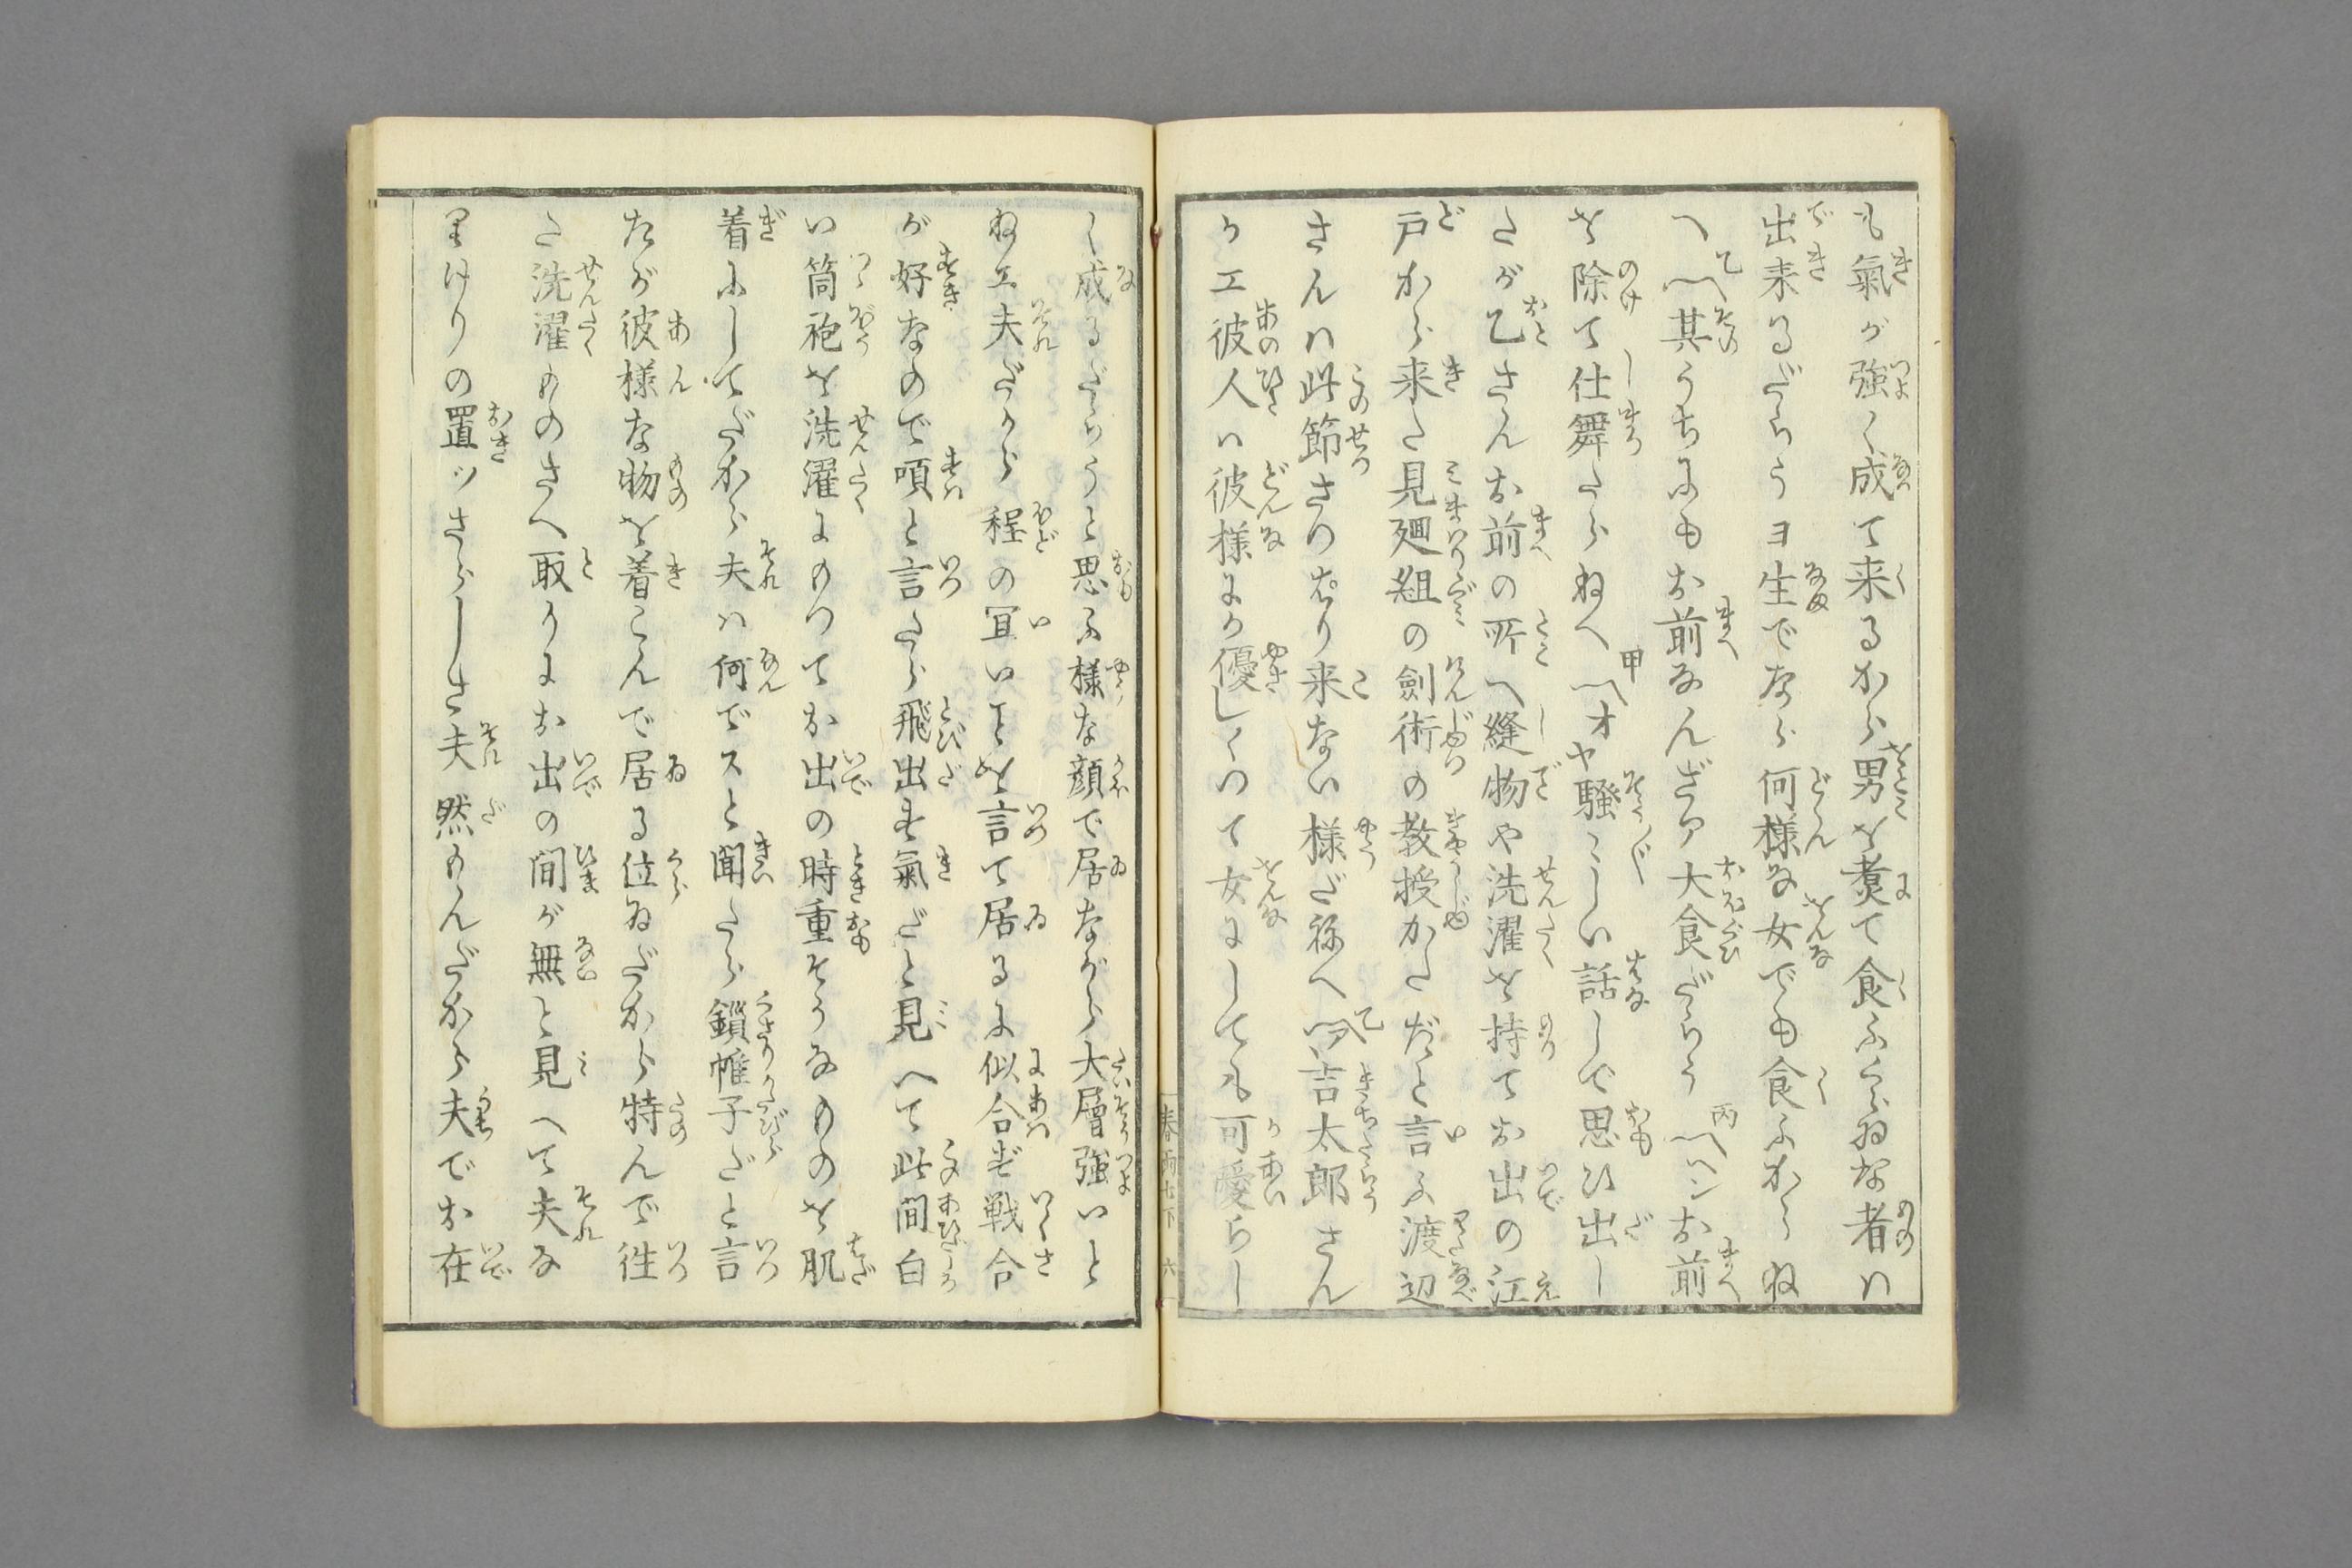 も氣が強く成て来るから男を煮て食ふくらゐな者は
出来るだらうヨ生でなら何様な女でも食ふからね
へ乙〽其うちにもお前なんざア大食だらう丙〽ヘンお前
を除て仕舞たらねへ甲〽オヤ騒〳〵しい話しで思ひ出し
たが乙さんお前の所へ縫物や洗濯を持てお出の江
戸から来た見廻組の劍術の教授かただと言ふ渡辺
さんは此節さつぱり来ない様だねへ乙〽吉太郎さん
かエ彼人は彼様にか優しくつて女にしても可愛らし
く成るだらうと思ふ様な顔で居ながら大層強いと
ねエ夫だから程の冝いことを言て居るに似合ず戦合
が好なので唄と言たら飛出す氣だと見へて此間白
い筒袍を洗濯にもつてお出の時重そうなものを肌
着にしてだから夫は何でスと聞たら鎖帷子だと言
たが彼様な物を着こんで居る位ゐだから特んで徃
た洗濯ものさへ取りにお出の間が無と見へて夫な
りけりの置ツさらしさ夫然もんだから夫でお在
春雨七下 六